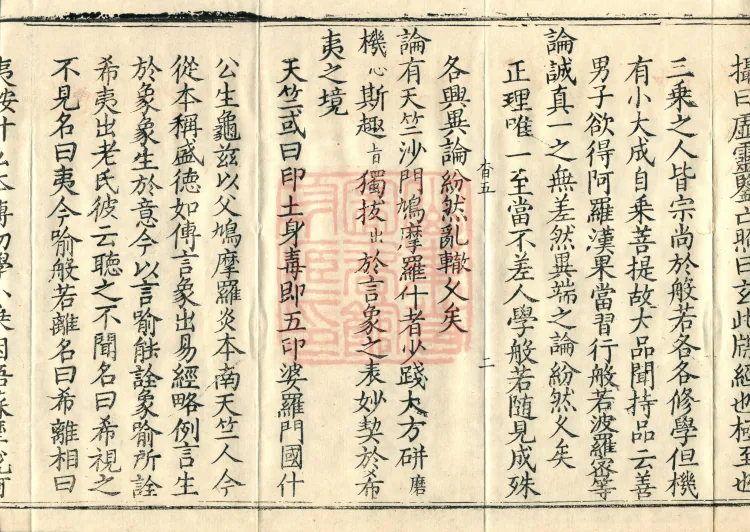 曰虛靈鑒照曰玄此牒經也極至也
三乘之人皆宗尚於般若各各修學但機
有小大成自乘菩提故大品聞持品云善
男子欲得阿羅漢果當習行般若波羅密等
論誠真一之無差然異端之論紛然久矣
正理唯一至當不差人學般若隨見成殊
杳五 二
各興異論紛然亂轍久矣
論有天竺沙門鳩摩羅什者少踐大方研磨
機心斯趣旨獨拔出於言象之表妙契於希
夷之境
天竺或曰印土身毒即五印婆羅門國什
公生龜茲以父鳩摩羅炎本南天竺人今
從本稱盛德如傳言象出易經略例言生
於象象生於意今以言喻能詮象喻所詮
希夷出老氏彼云聽之不聞名曰希視之
不見名曰夷今喻般若離名曰希離相曰
夷按什公本傳初學小乘因